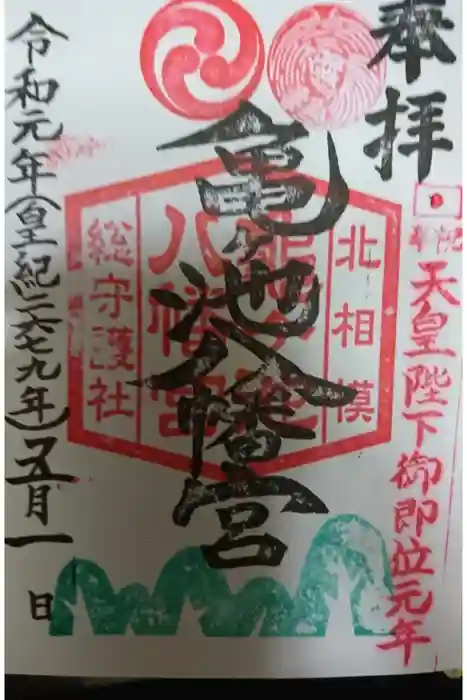 奉拝
奉祝
天皇陛下御即位元年
北相模
亀ヶ池
八幡宮
総守護社
亀ヶ池八幡宮
令和元年(皇紀二六七九年)五月一日